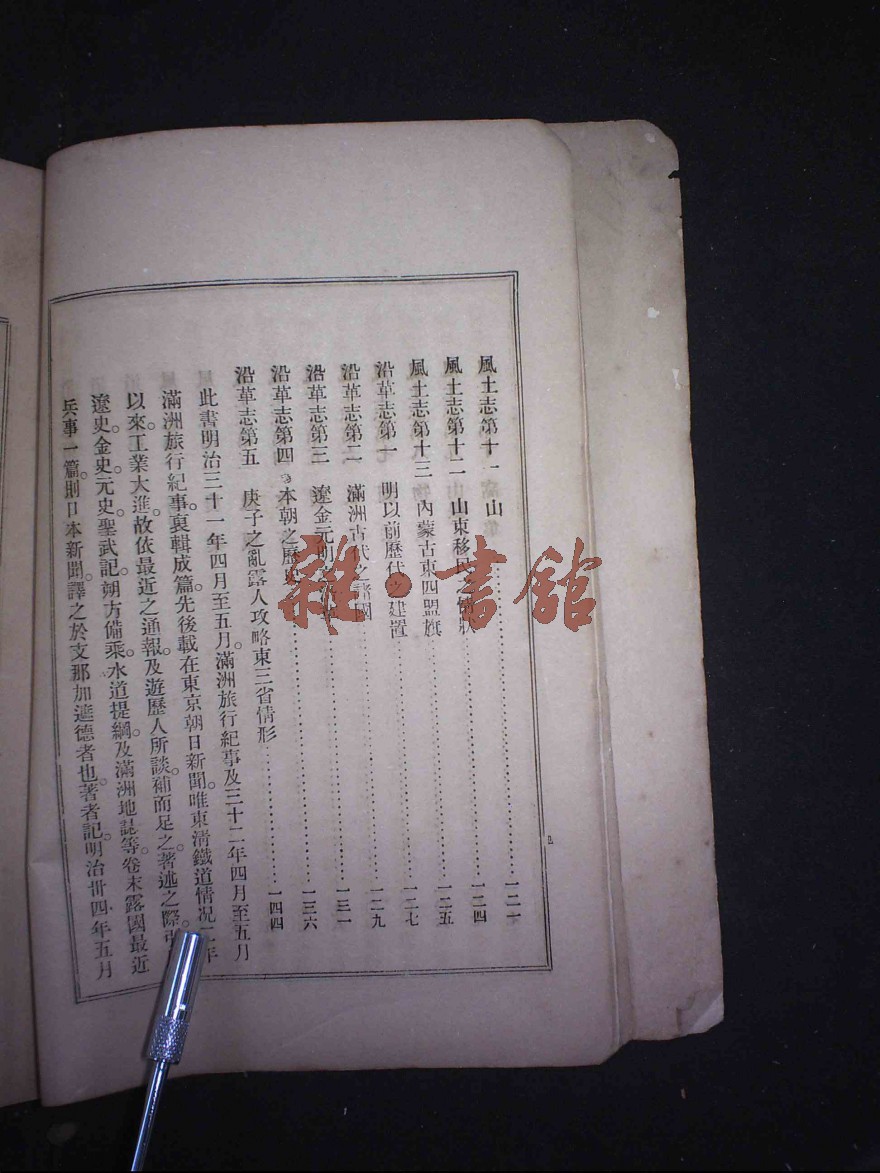 風土志第十一 山……一二一
風土志第十二 山東移民之情狀……一二四
風土志第十三 內蒙古東四盟旗……一二五
沿革志第一 明以前歷代之建置……一二七
沿革志第二 滿洲古代之諸國……一二九
沿革志第三 遼金元明……一三一
沿革志第四 本朝之歷史……一三六
沿革志第五 庚子之亂露人攻略東三省情形……一四四
此書明治三十一年四月至五月。滿洲旅行紀事及三十二年四月至五月
滿洲旅行紀事。裒輯成篇先後載在東京朝日新聞。唯東淸鐵道情況年
以來。工業大進。故依最近之通報。及遊歷人所談。補而足之。著述之際。
遼史。金史。元史。聖武記。朔方備乘。水道提綱。及滿洲地誌等。卷末露國最近
兵事一篇。則日本新聞。譯之於支那加達德者也。著者記。明治卅四年五月
雜·書館